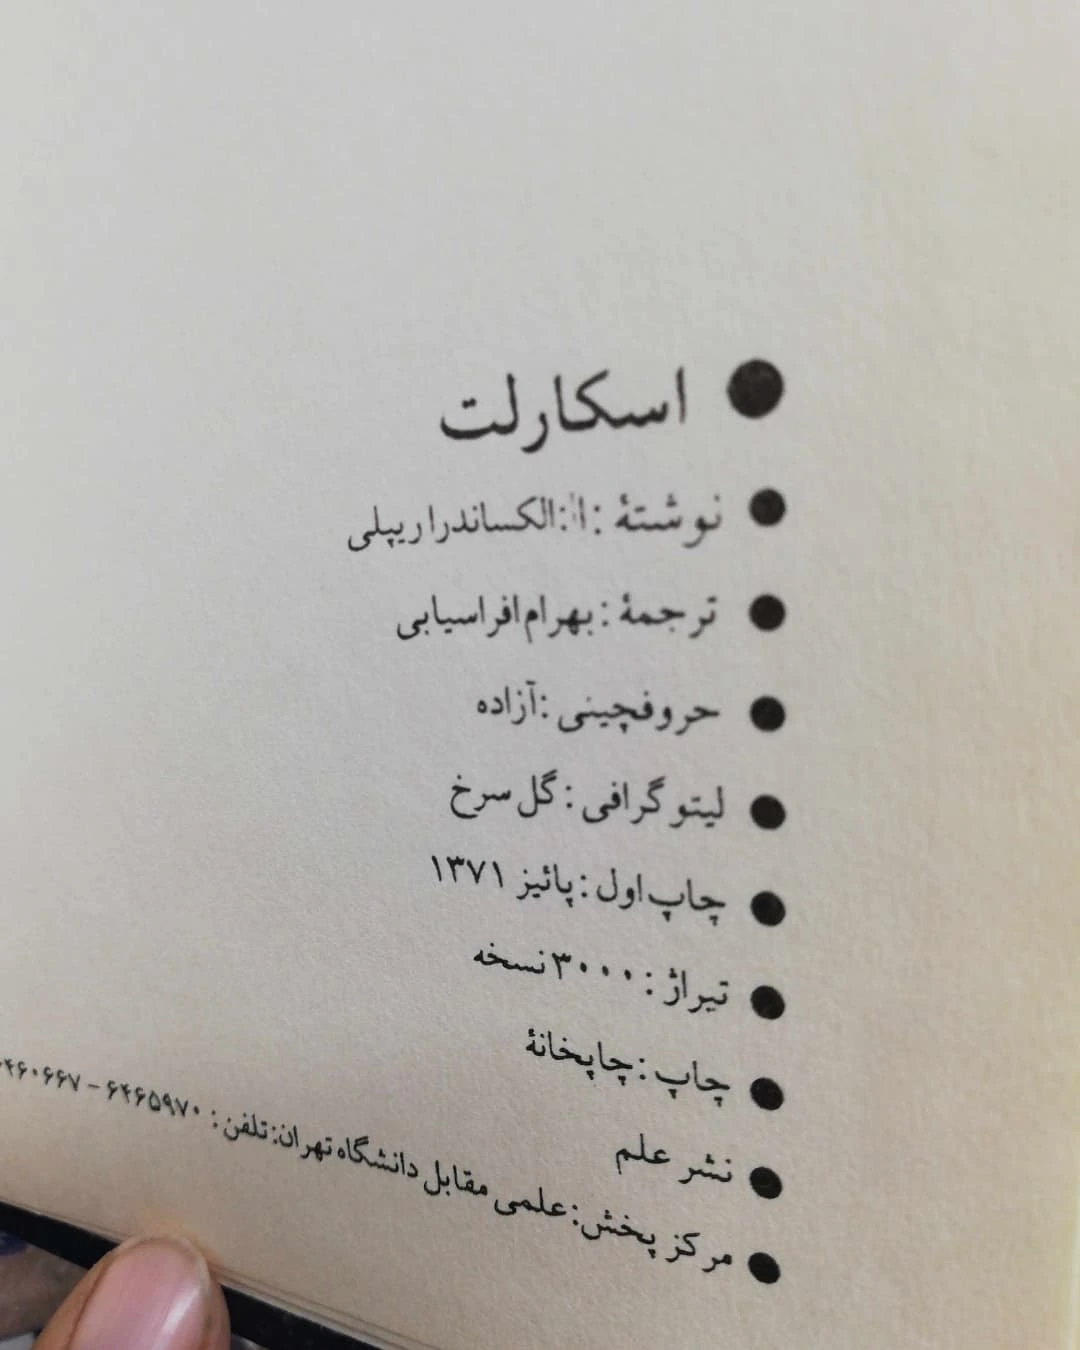 ● اسکارلت
● نوشتهٔ : ا:الکساندرا ریپلی
● ترجمهٔ : بهرام افراسیابی
● حروفچینی : آزاده
● لیتوگرافی : گل سرخ
● چاپ اول : پائیز ۱۳۷۱
● تیراژ : ۳۰۰۰ نسخه
● چاپ : چاپخانهٔ
● نشر علم
● مرکز پخش: علمی مقابل دانشگاه تهران: تلفن : ۶۴۶۵۹۷۰ -